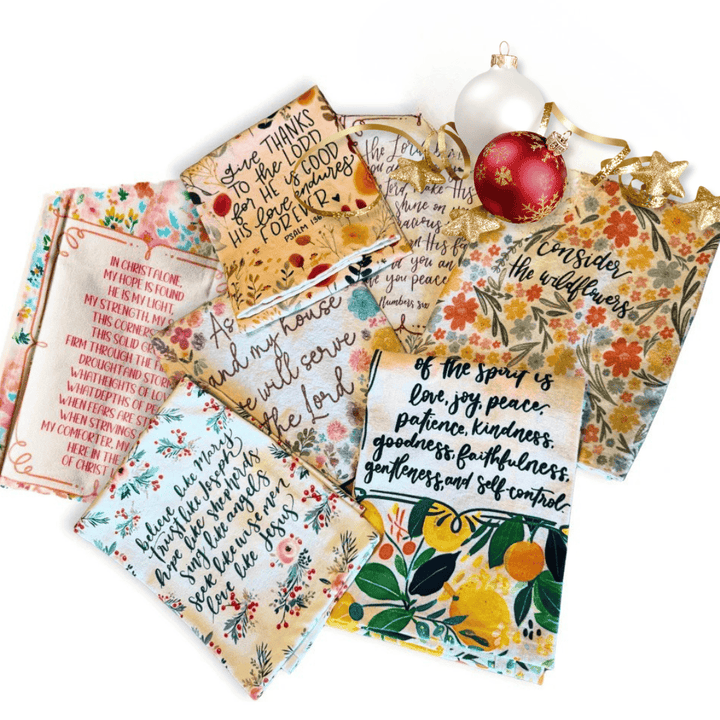 give THANKS
TO the LORD
for HE is GOOD
HIS love endures
FOREVER
PSALM 136
the Lord
you
Lord make
shine on
gracious
on
and you an
ve you peace
Numbers
consider
the wildflowers
IN CHRIST ALONE,
MY HOPE IS FOUND
HE IS MY LIGHT,
MY STRENGTH, MY
THIS CORNERS
THIS SOLID GR
FIRM THROUGH THE
DROUGHT AND STOR
WHAT HEIGHTS OF LO
WHAT DEPTHS OF PE
WHEN FEARS ARE ST
WHEN STRIVINGS
MY COMFORTER, MY
HERE IN THE
OF CHRIST
As
and my house
we will serve
the Lord
of the spirit is
love, joy, peace,
patience, kindness,
goodness, faithfulness,
gentleness, and self-control
believe like Mary
trust like Joseph
hope like shepherds
sing like angels
seek like wise men
love like Jesus